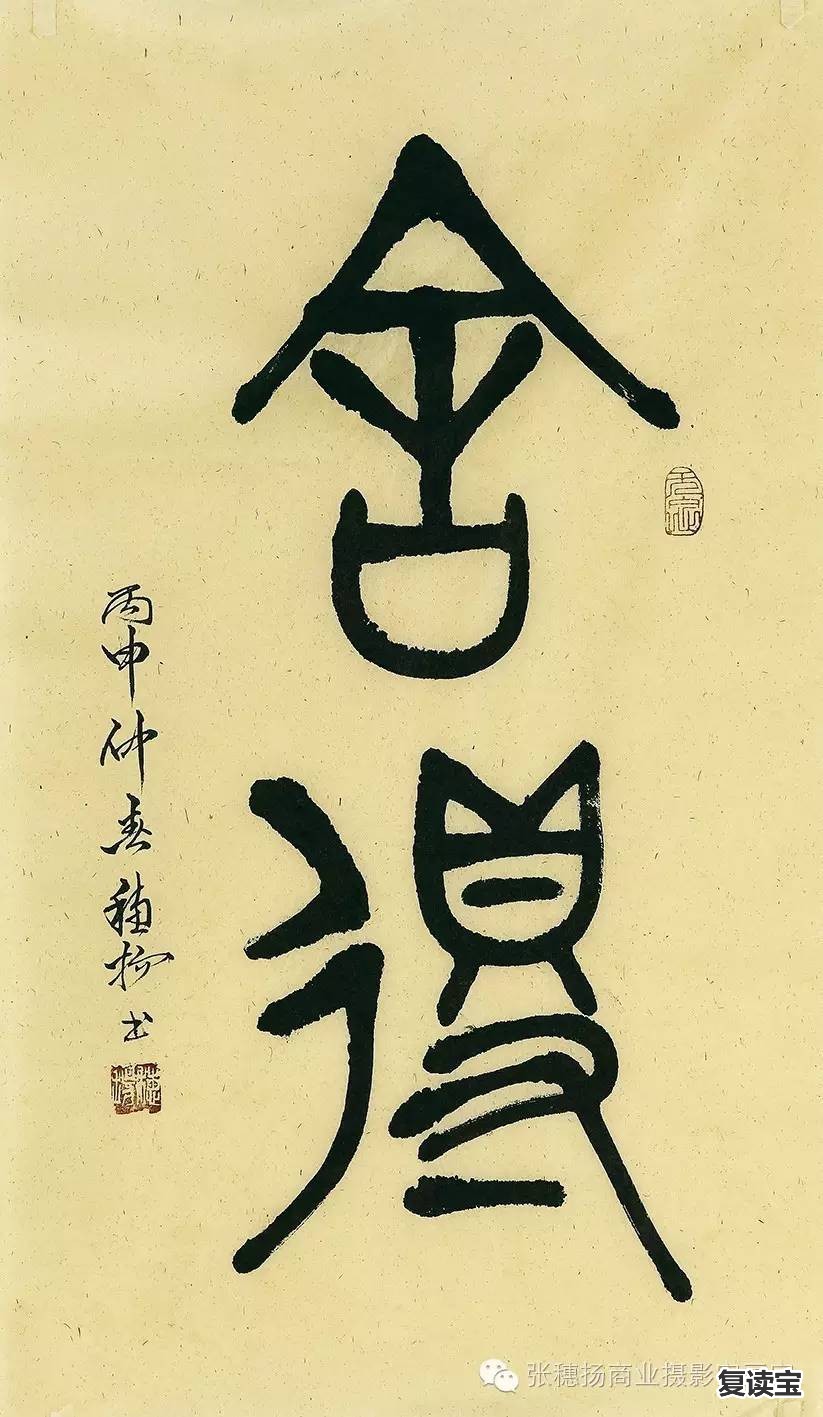 舍得
丙申仲春穗扬书
穗扬
张穗扬商业摄影
复读宝